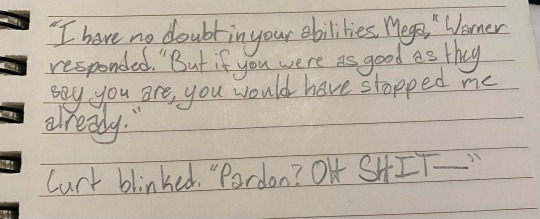 "I have no doubt in your abilities, Mega," Warner
responded. "But if you were as good as they
say you are, you would have stopped me
already."
Curt blinked. "Pardon? OH SHIT—"